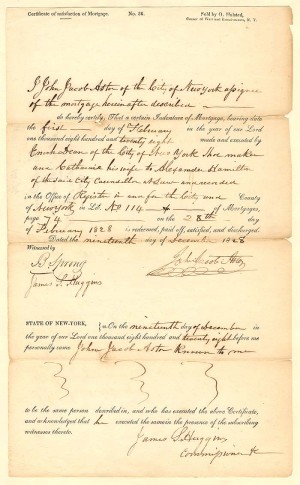 Certificate of satisfaction of Mortgage. No. 56. Sold by O. Halsted,
Corner of Wall and Broad streets, N. Y.
I John Jacob Astor of the City of New York assignee
of the mortgage hereinafter described
do hereby certify, That a certain Indenture of Mortgage, bearing date
the first day of February in the year of our Lord
one thousand eight hundred and twenty eight made and executed by
Enoch Dean of the City of New York Shoe maker
and Catharine his wife to Alexander Hamilton
of the said City Counsellor at Law and recorded
in the Office of Register in and for the City and County
of New York in Lib. No 114 of Mortgages,
page 74 on the 28th day
of February 1828 is redeemed, paid off, satisfied, and discharged.
Dated the nineteenth day of December 1828
Witnessed by
B Sprong John Jacob Astor
James S. Huggins
STATE OF NEW-YORK, On the nineteenth day of December
in the year of our Lord one thousand eight hundred and twenty eight before me
personally came John Jacob Astor known to me
to be the same person described in, and who has executed the above Certificate,
and acknowledged that he executed the same in the presence of the subscribing
witnesses thereto.
James S. Huggins
Commissioner &c